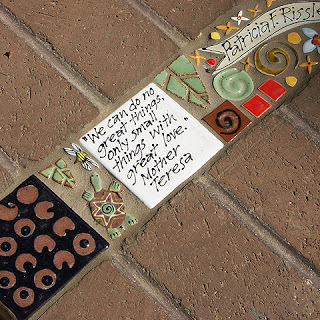 "We can do no
great things,
only small
things with
great love."
Mother
Teresa
Patricia F. Rissle